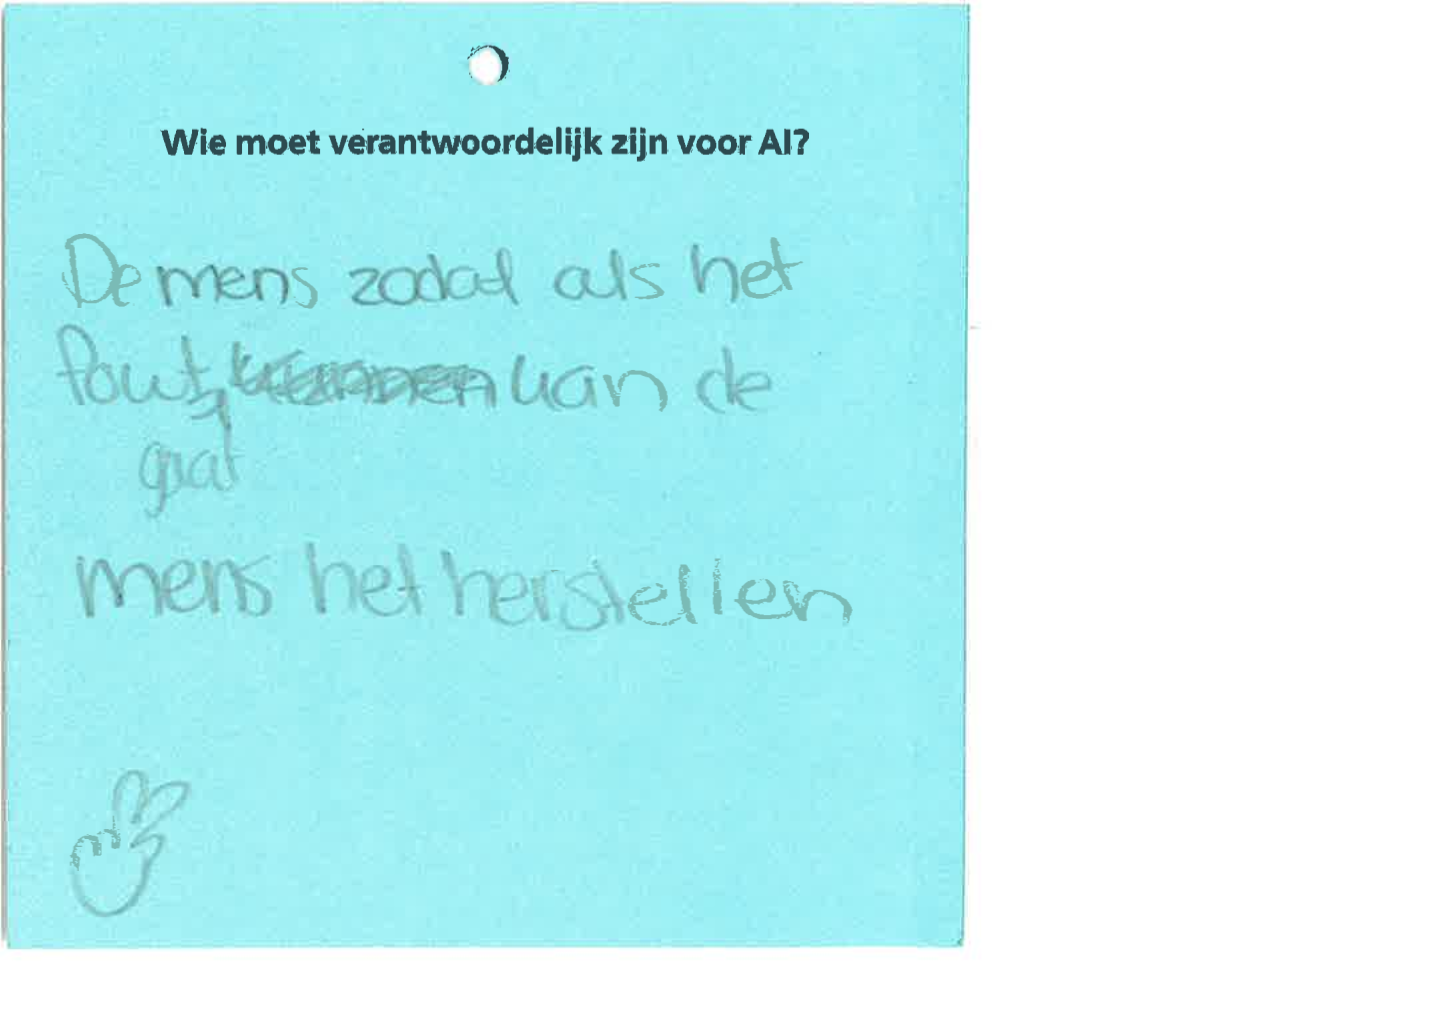 Wie moet verantwoordelijk zijn voor AI?
De mens zodat als het
fout, kan de
gaat
mens het herstellen